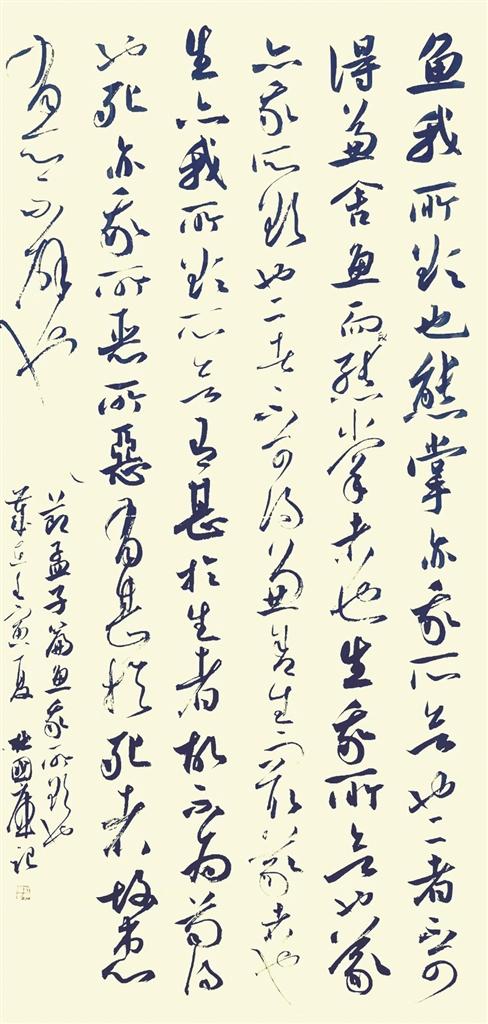 鱼我所欲也熊掌亦我所欲也二者不可
得兼舍鱼而取熊掌者也生我所欲也義
亦我所欲也二者不可得兼舍生而取義者也
生亦我所欲所欲有甚於生者故不为苟得
也死亦我所惡所惡有甚於死者故患
有所不辟也
節孟子篇鱼我所欲也
歲在壬寅夏 杜國 記